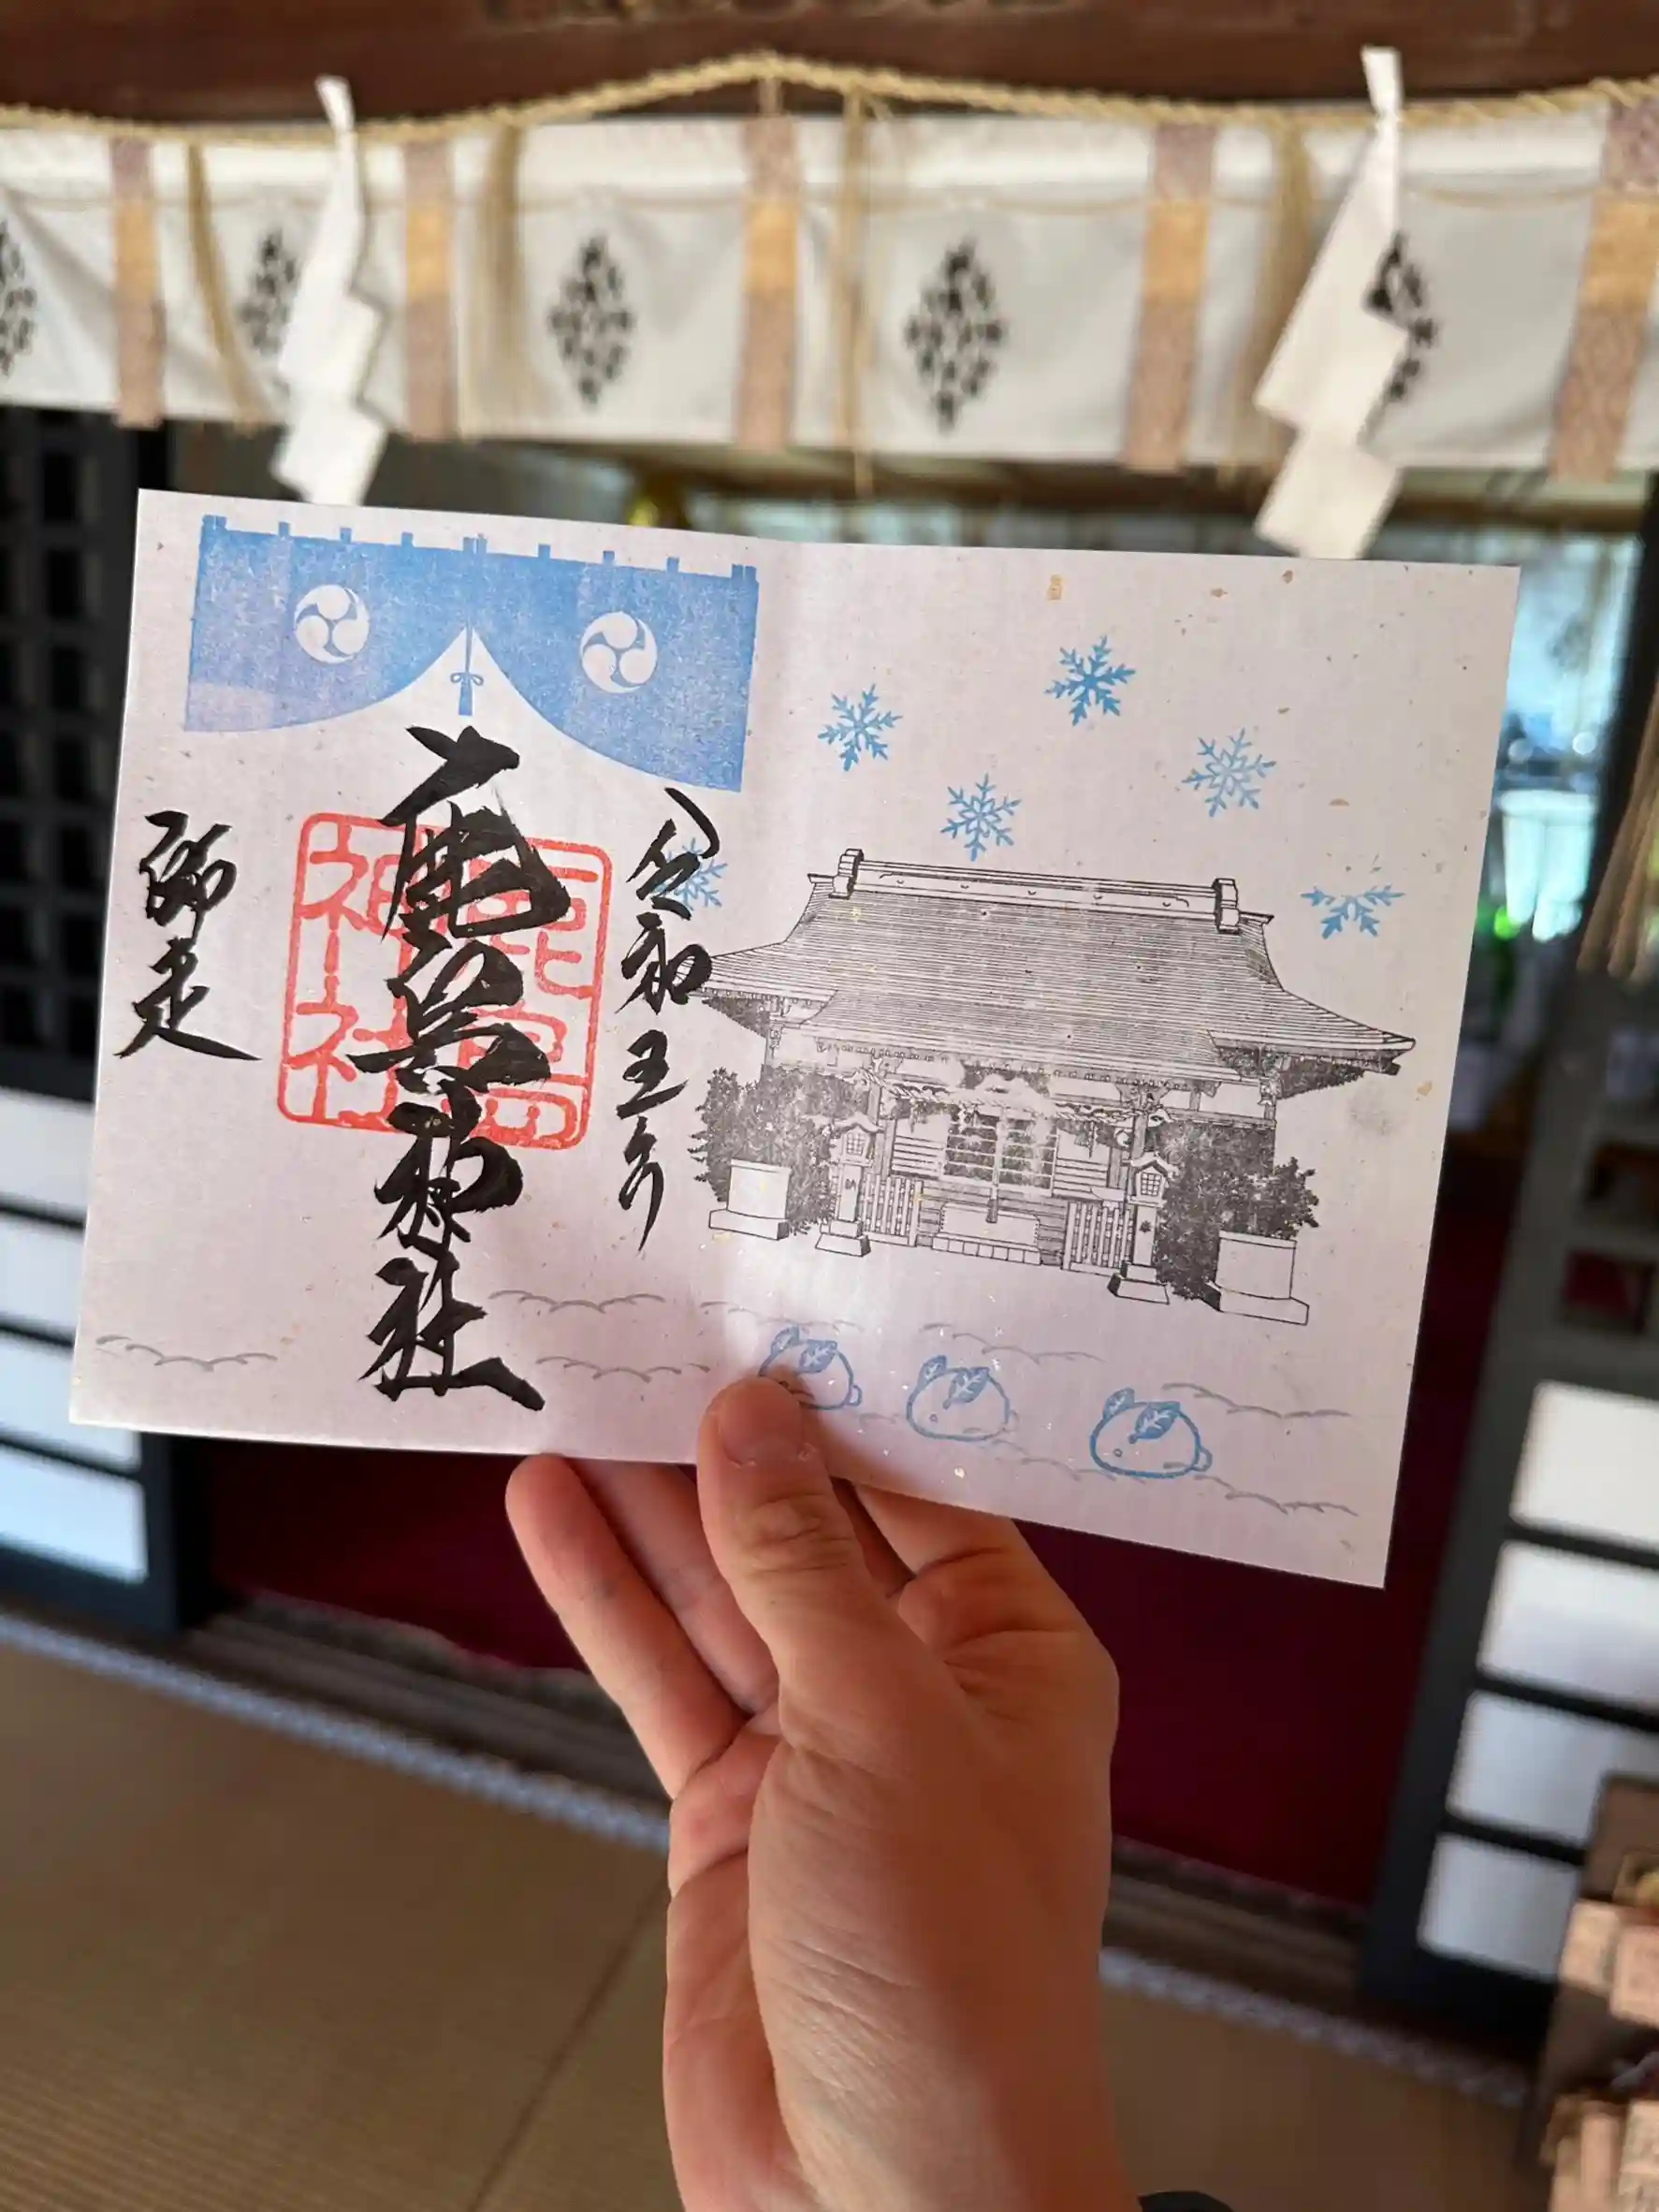 令和五年
鹿島神社
師走
鹿島
神社